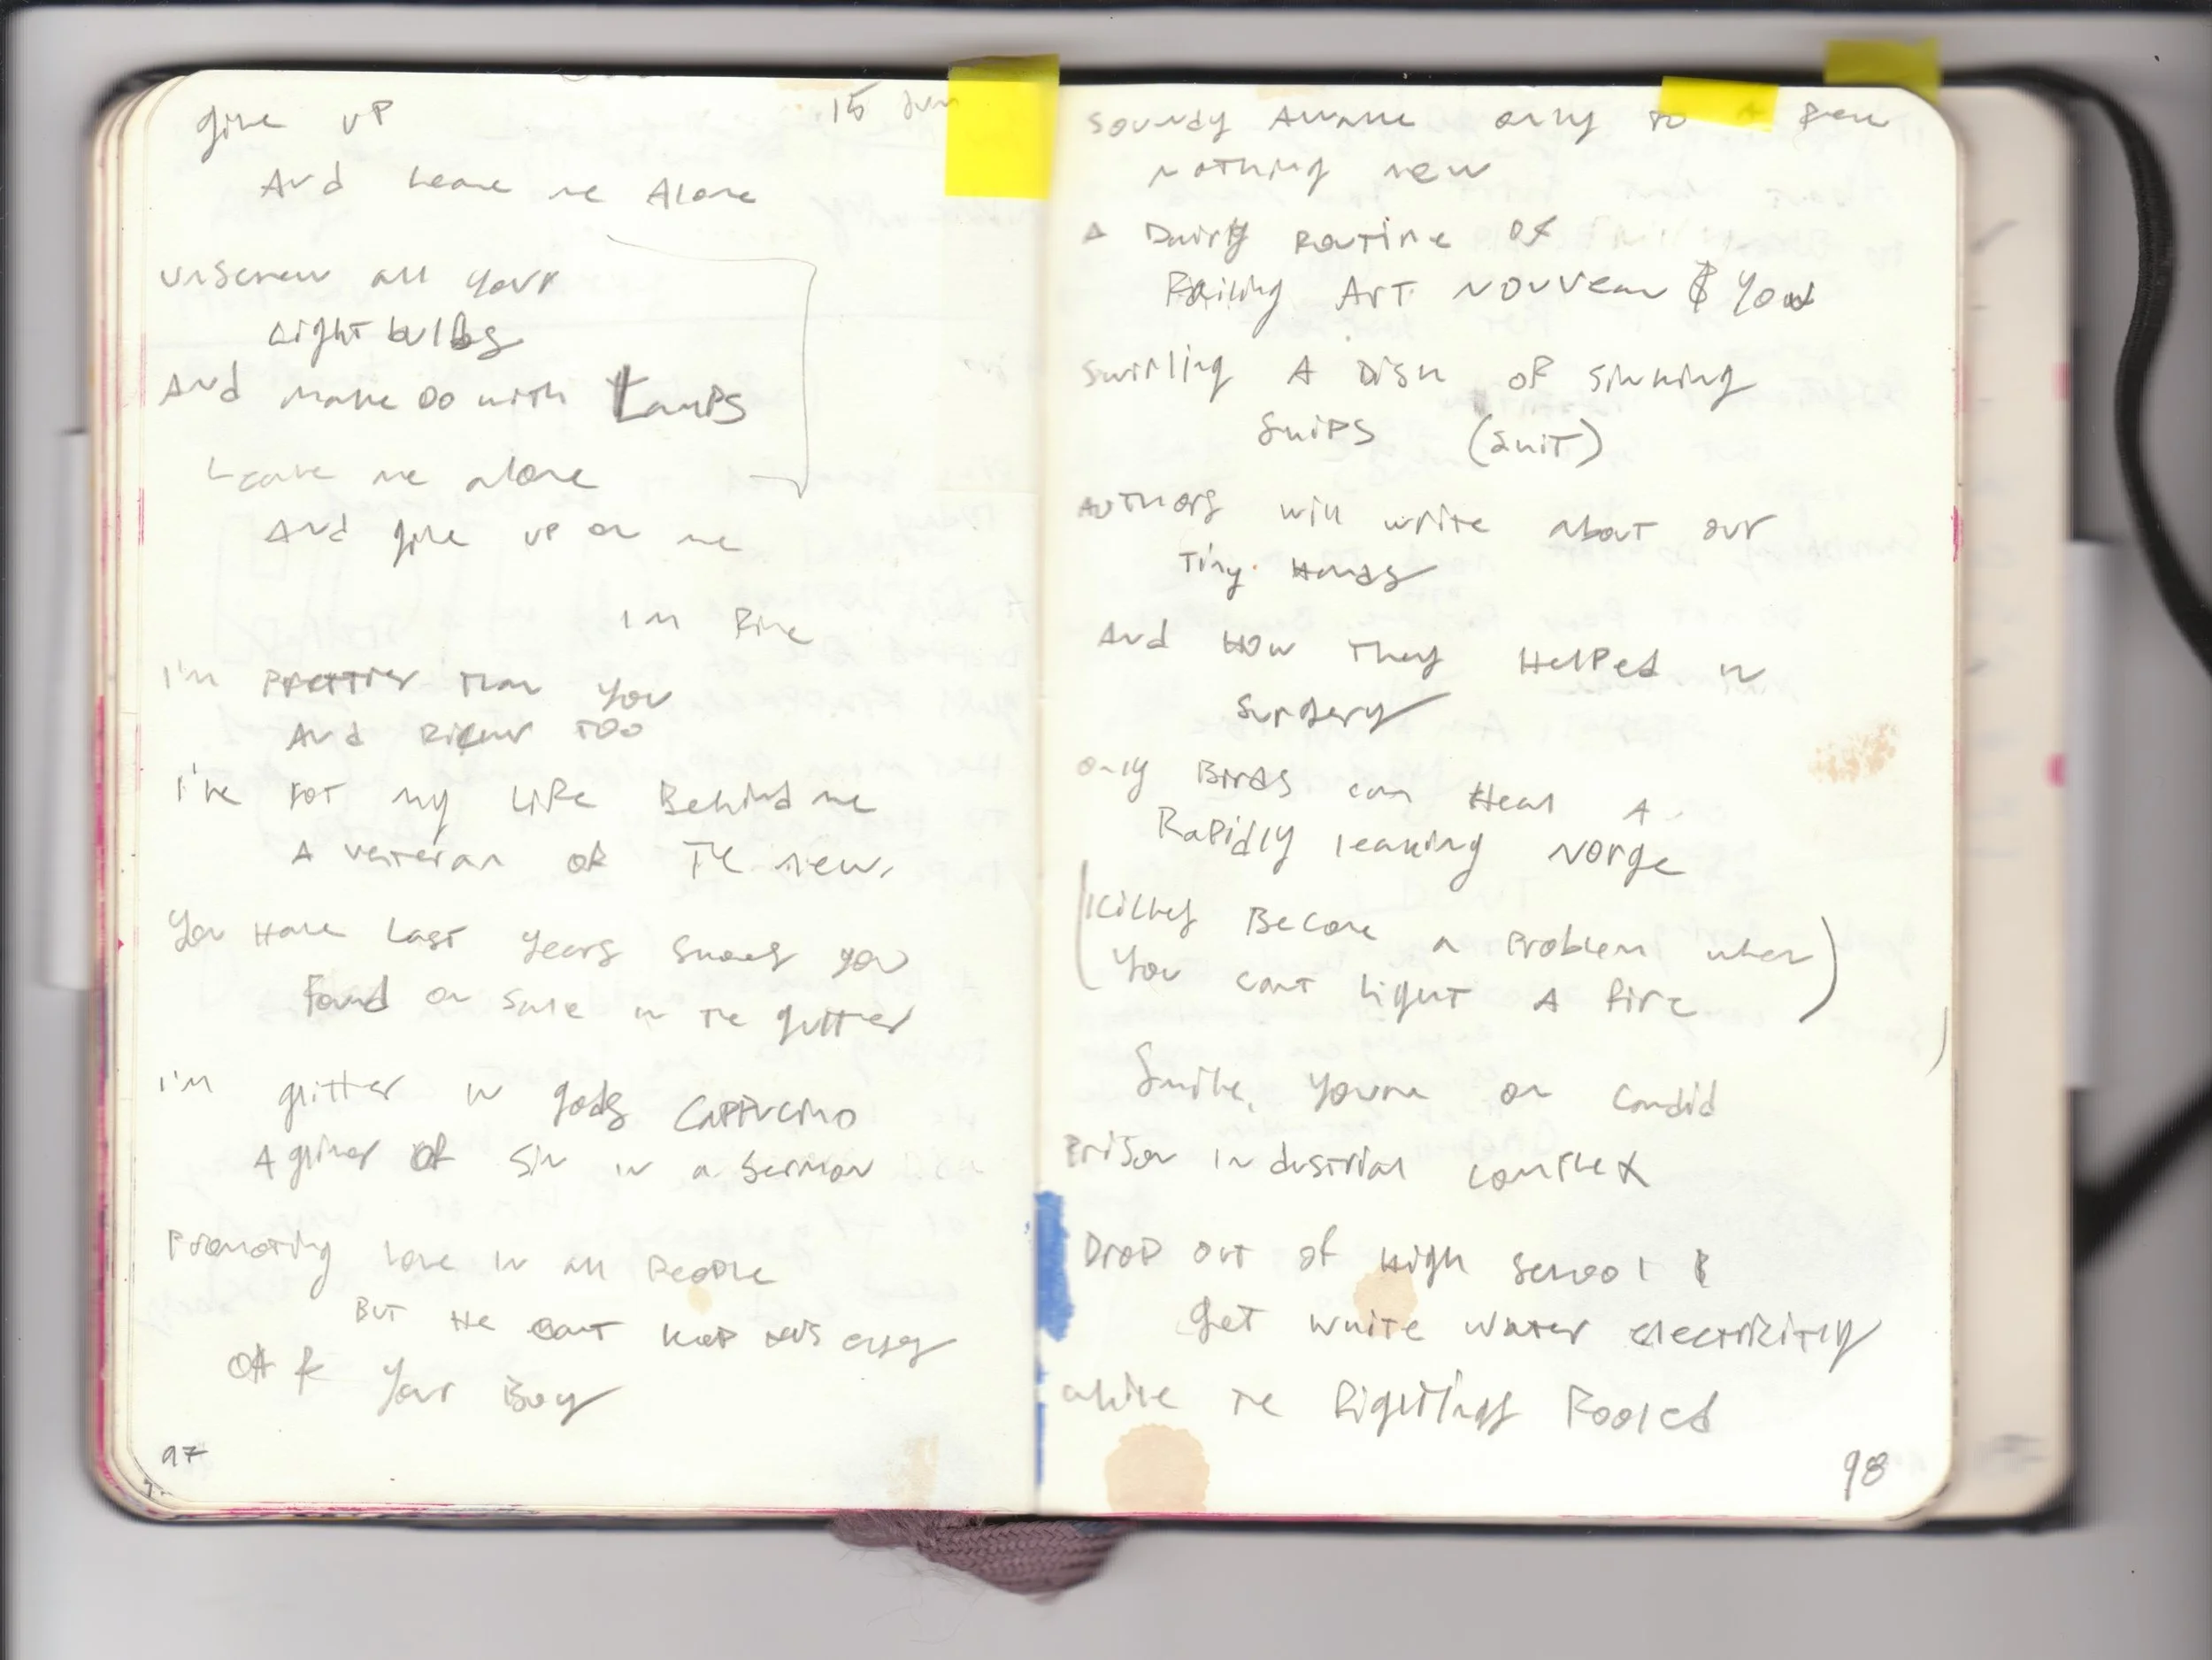 15 Jun
give up
And Leave me Alone
unscrew all your
Light bulbs
And make Do with Lamps
Leave me alone
And give up on me
I'm Fine
I'm Prettier Than you
And Richer Too
I've got my Life Behind me
A veteran of The new
You Have Last years shoes you
Found on sale in The gutter
I'm glitter in gods Cappuccino
A glimer of sin in a sermon
Promoting Love in all People
But He can't keep his eyes
off your Boy
97
soundy Aware only to a Few
nothing new
A Daily Routine of
Failing Art Nouveau & You
swirling A Dish of sinking
Ships (shit)
Authors will write about our
Tiny Hands
And How They Helped in
Surgery
only Birds can Hear A
Rapidly leaking Norge
(Kilney Become a Problem when
You can't Light A fire)
Smile, You're on Candid
Prison Industrial Complex
Drop out of High School &
get white water electricity
alive The Fooled
98